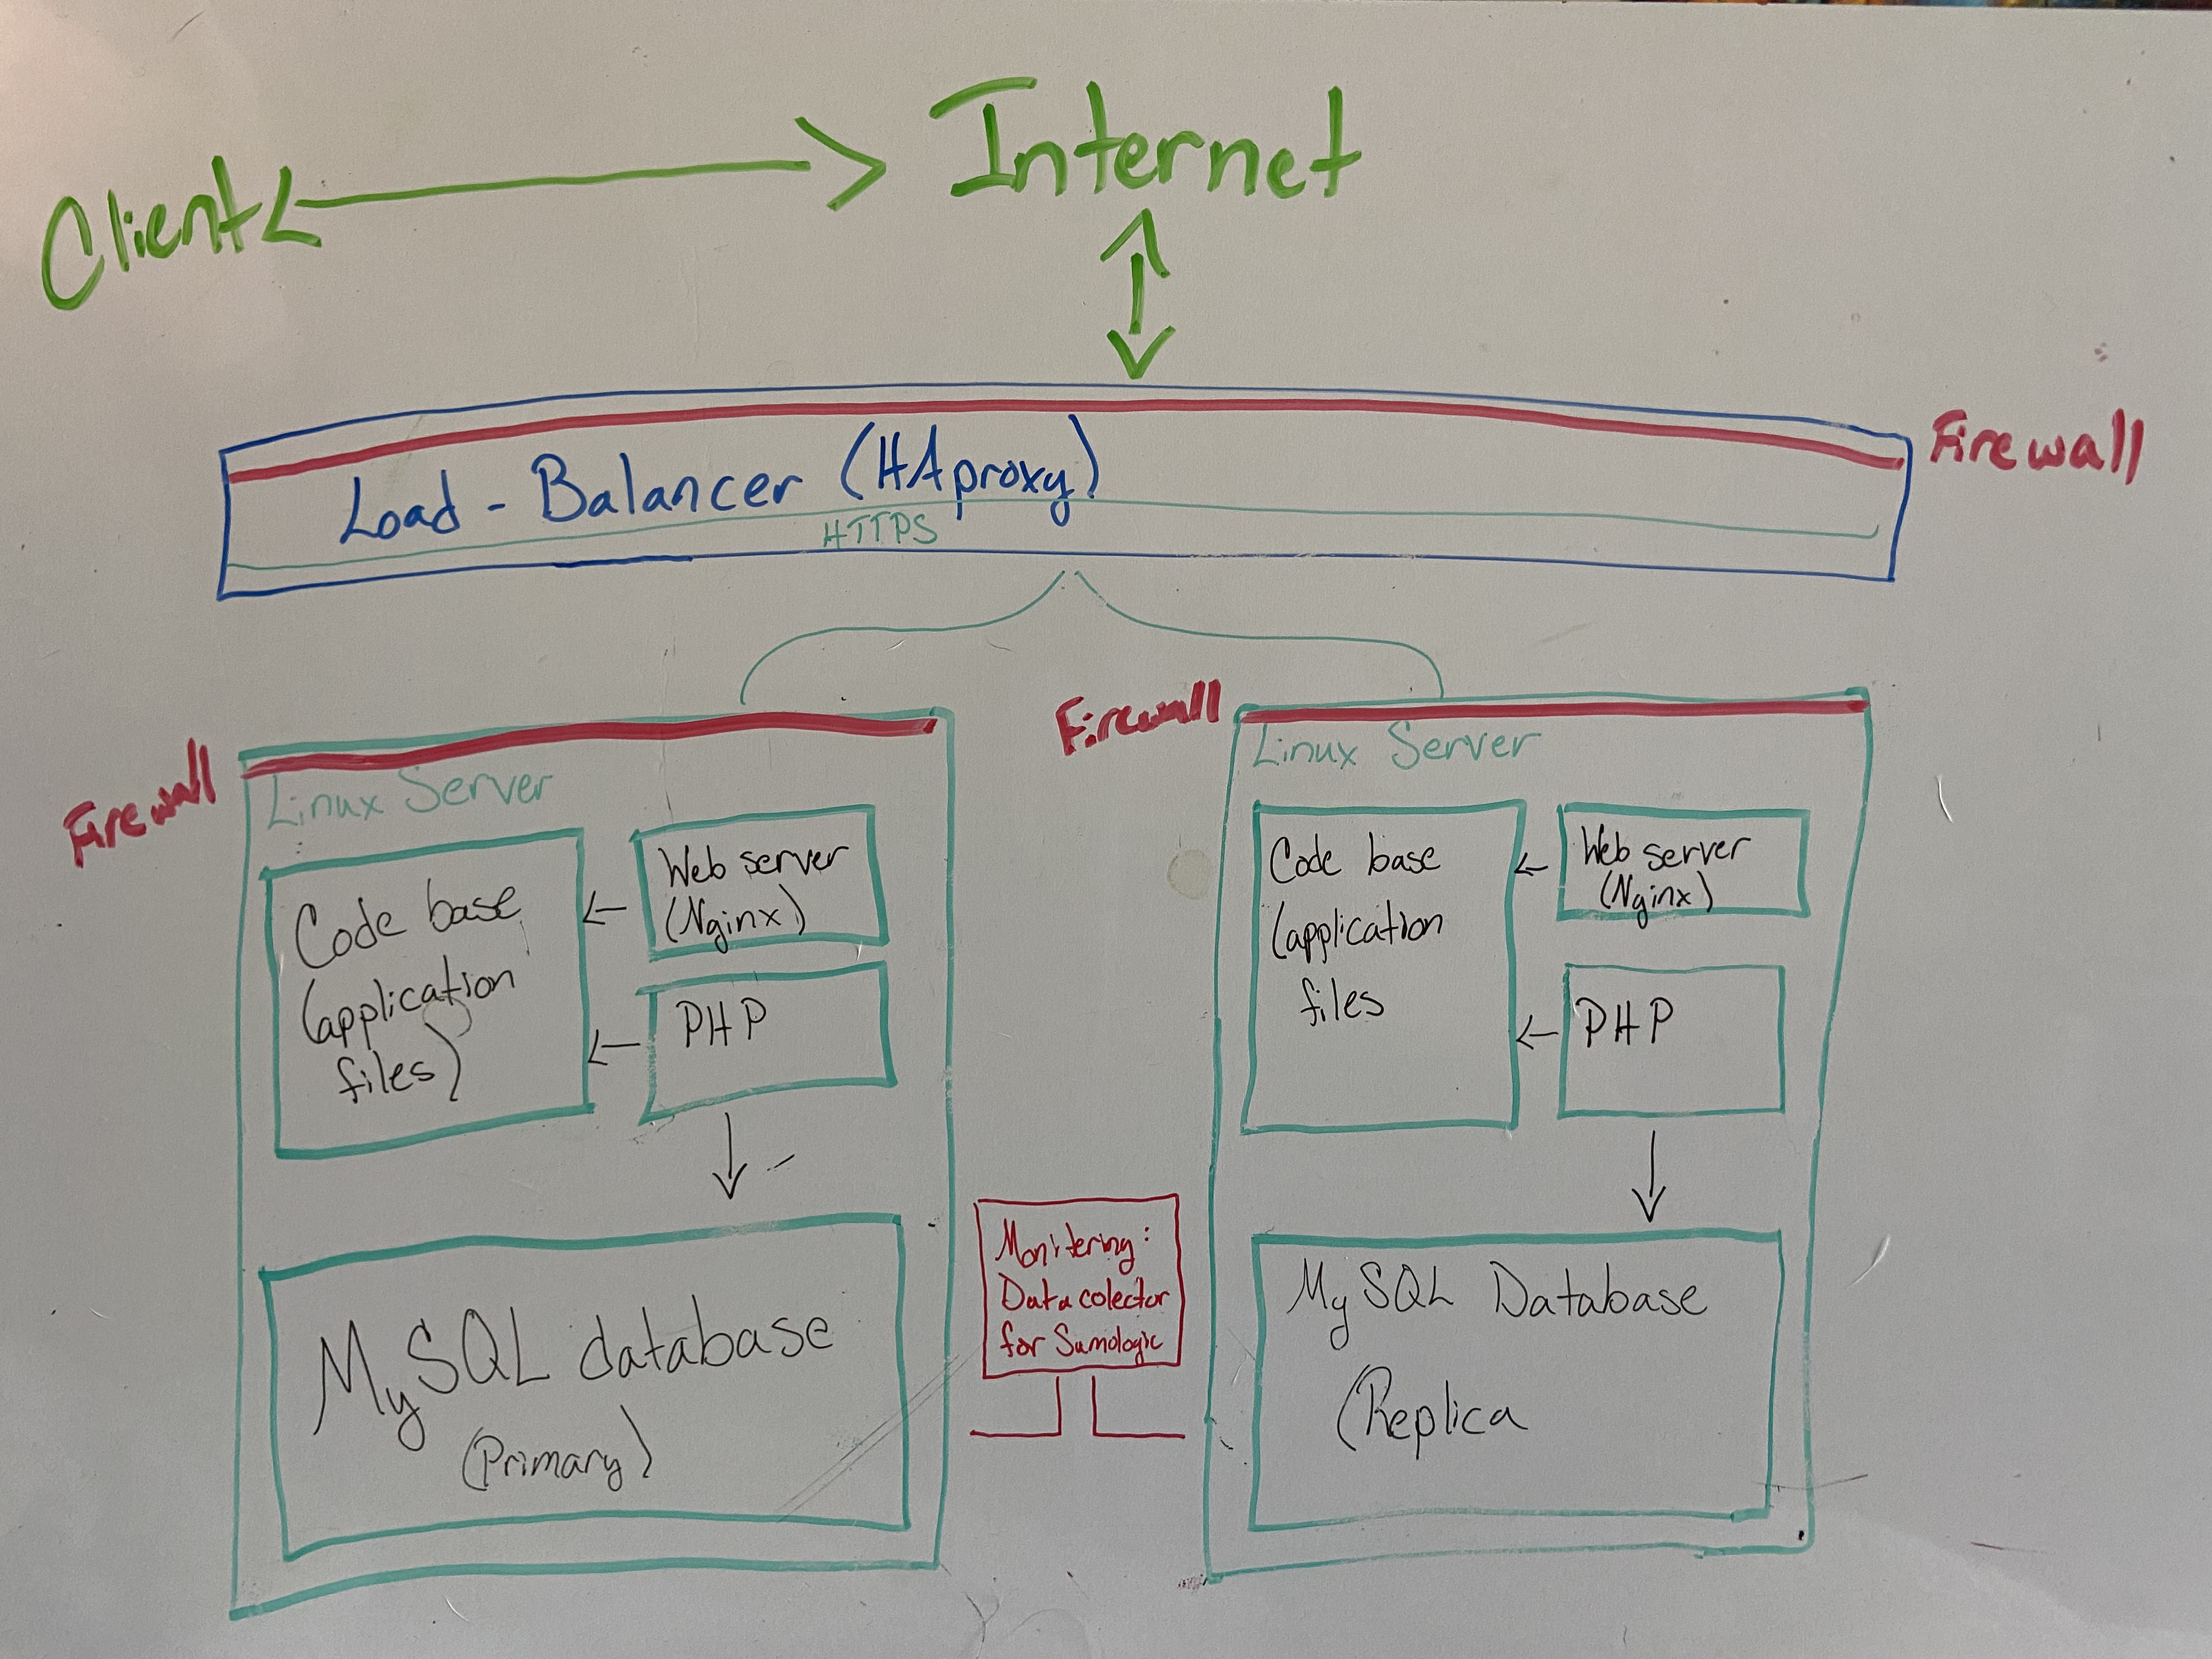 Internet
Client
Firewall
Load-Balancer (HAproxy)
HTTPS
Firewall
Linux Server
Code base
(application
files)
Web server
(Nginx)
PHP
MySQL database
(Primary)
Monitering:
Data colector
for Sumologic
Firewall
Linux Server
Code base
(application
files
Web server
(Nginx)
PHP
MySQL Database
(Replica